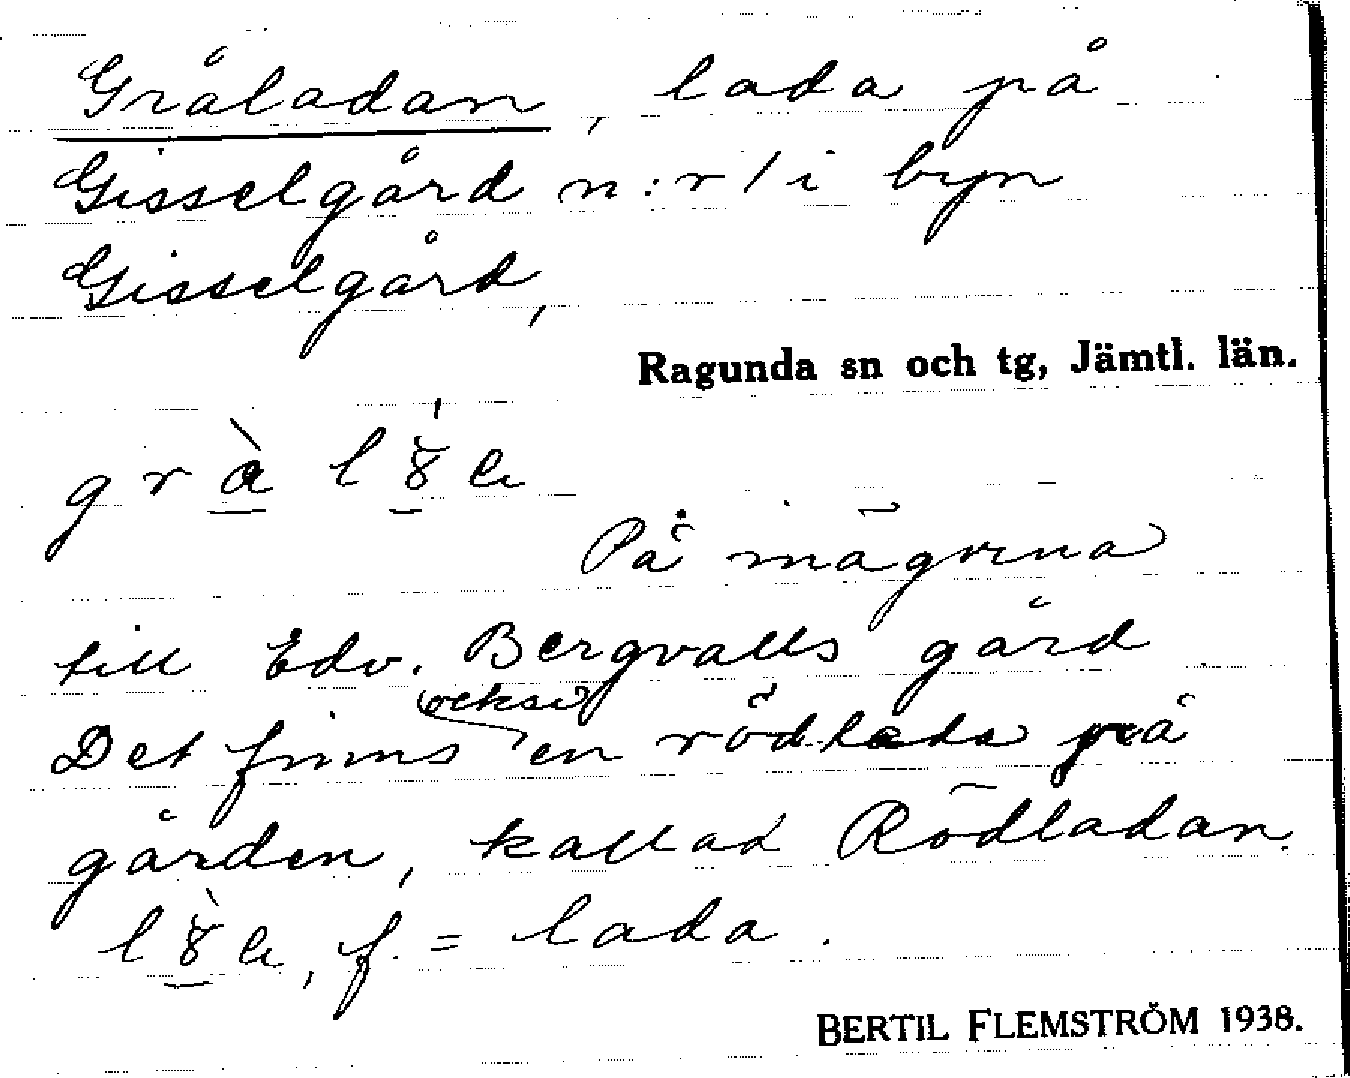 Gråladan, lada på
Gisselgård n:r 1 i byn
Gisselgård,
Ragunda sn och tg, Jämtl. län.
På mågorna
till Edv. Bergvalls gård
Det finns också en rödlada på
gården, kallad Rödladan.
f. = lada.
BERTIL FLEMSTRÖM 1938.